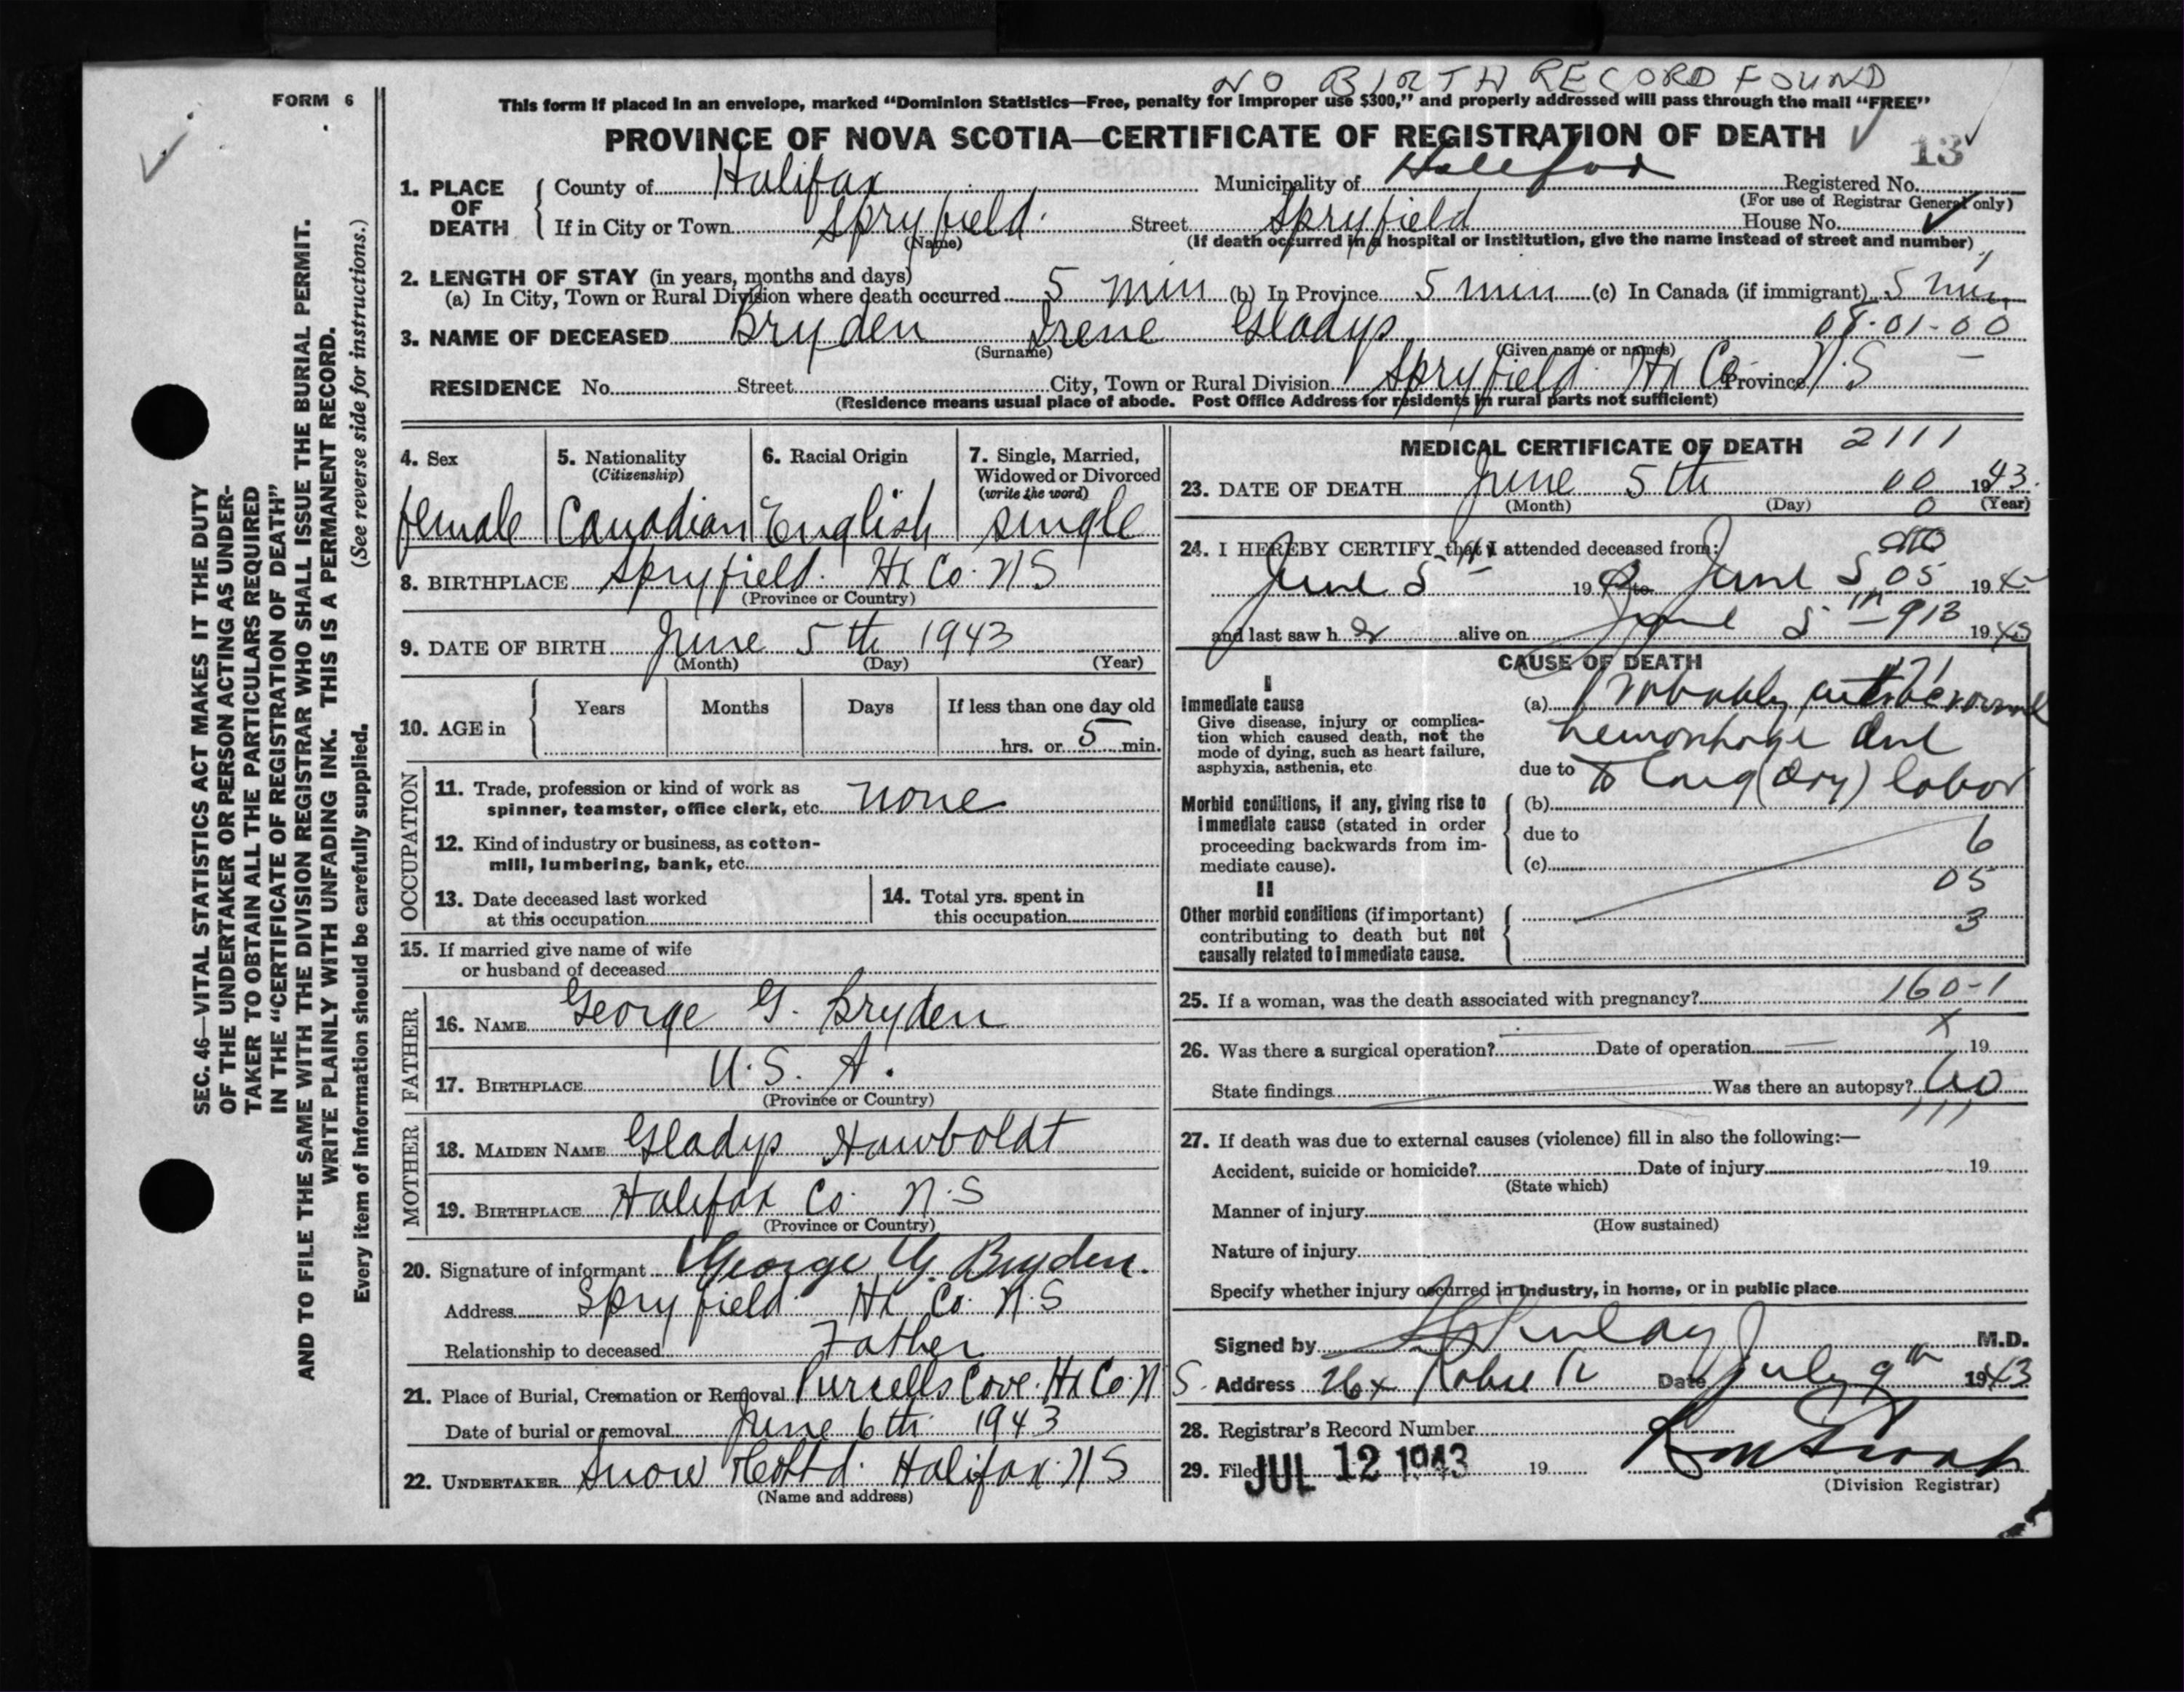 NO BIRTH RECORD FOUND
FORM 6
This form if placed in an envelope, marked “Dominion Statistics—Free, penalty for improper use $300,” and properly addressed will pass through the mail “FREE”
PROVINCE OF NOVA SCOTIA—CERTIFICATE OF REGISTRATION OF DEATH
13
1. PLACE OF DEATH County of Halifax Municipality of Halifax Registered No.
(For use of Registrar General only)
If in City or Town Spryfield. Street Spryfield House No.
(Name)
(If death occurred in a hospital or institution, give the name instead of street and number)
2. LENGTH OF STAY (in years, months and days)
(a) In City, Town or Rural Division where death occurred 5 min (b) In Province 5 min (c) In Canada (if immigrant) 5 min
3. NAME OF DECEASED Bryden Irene Gladys 01-00
(Surname) (Given name or names)
RESIDENCE No. Street City, Town or Rural Division Spryfield Hx Co. Province N.S
(Residence means usual place of abode. Post Office Address for residents in rural parts not sufficient)
SEC. 46—VITAL STATISTICS ACT MAKES IT THE DUTY
OF THE UNDERTAKER OR PERSON ACTING AS UNDER-
TAKER TO OBTAIN ALL THE PARTICULARS REQUIRED
IN THE “CERTIFICATE OF REGISTRATION OF DEATH”
AND TO FILE THE SAME WITH THE DIVISION REGISTRAR WHO SHALL ISSUE THE BURIAL PERMIT.
WRITE PLAINLY WITH UNFADING INK. THIS IS A PERMANENT RECORD.
Every item of information should be carefully supplied. (See reverse side for instructions.)
4. Sex
female
5. Nationality
(Citizenship)
Canadian
6. Racial Origin
English
7. Single, Married,
Widowed or Divorced
(write the word)
single
8. BIRTHPLACE Spryfield. Hx Co. NS
(Province or Country)
9. DATE OF BIRTH June 5th 1943
(Month) (Day) (Year)
10. AGE in Years Months Days If less than one day old
hrs. or 5 min.
OCCUPATION
11. Trade, profession or kind of work as
spinner, teamster, office clerk, etc. none
12. Kind of industry or business, as cotton-
mill, lumbering, bank, etc.
13. Date deceased last worked
at this occupation
14. Total yrs. spent in
this occupation
15. If married give name of wife
or husband of deceased
FATHER
16. NAME George G. Bryden
17. BIRTHPLACE U.S.A.
(Province or Country)
MOTHER
18. MAIDEN NAME Gladys Hawboldt
19. BIRTHPLACE Halifax Co. N.S
(Province or Country)
20. Signature of informant George G. Bryden.
Address Spryfield Hx Co. N.S
Relationship to deceased Father
21. Place of Burial, Cremation or Removal Purcells Cove. Hx Co. N S.
Date of burial or removal June 6th 1943
22. UNDERTAKER Snow Co Ltd. Halifax. NS
(Name and address)
MEDICAL CERTIFICATE OF DEATH 2111
23. DATE OF DEATH June 5th 00 1943.
(Month) (Day) (Year)
0
24. I HEREBY CERTIFY that I attended deceased from:
June 5th 19 to June 5 05 19
and last saw h er alive on June 5th 913 19
CAUSE OF DEATH
I
Immediate cause
Give disease, injury or complica-
tion which caused death, not the
mode of dying, such as heart failure,
asphyxia, asthenia, etc
(a) Probably
hemorrhage due
due to to long (dry) labor
Morbid conditions, if any, giving rise to
immediate cause (stated in order
proceeding backwards from im-
mediate cause).
(b)
due to
6
(c)
05
II
Other morbid conditions (if important)
contributing to death but not
causally related to immediate cause.
3
25. If a woman, was the death associated with pregnancy? 160-1
X
26. Was there a surgical operation? Date of operation 19
State findings Was there an autopsy? no
27. If death was due to external causes (violence) fill in also the following:—
Accident, suicide or homicide? Date of injury 19
(State which)
Manner of injury
(How sustained)
Nature of injury
Specify whether injury occurred in industry, in home, or in public place
Signed by M.D.
Address Date July 9th 1943
28. Registrar's Record Number
29. Filed JUL 12 1943 19
(Division Registrar)